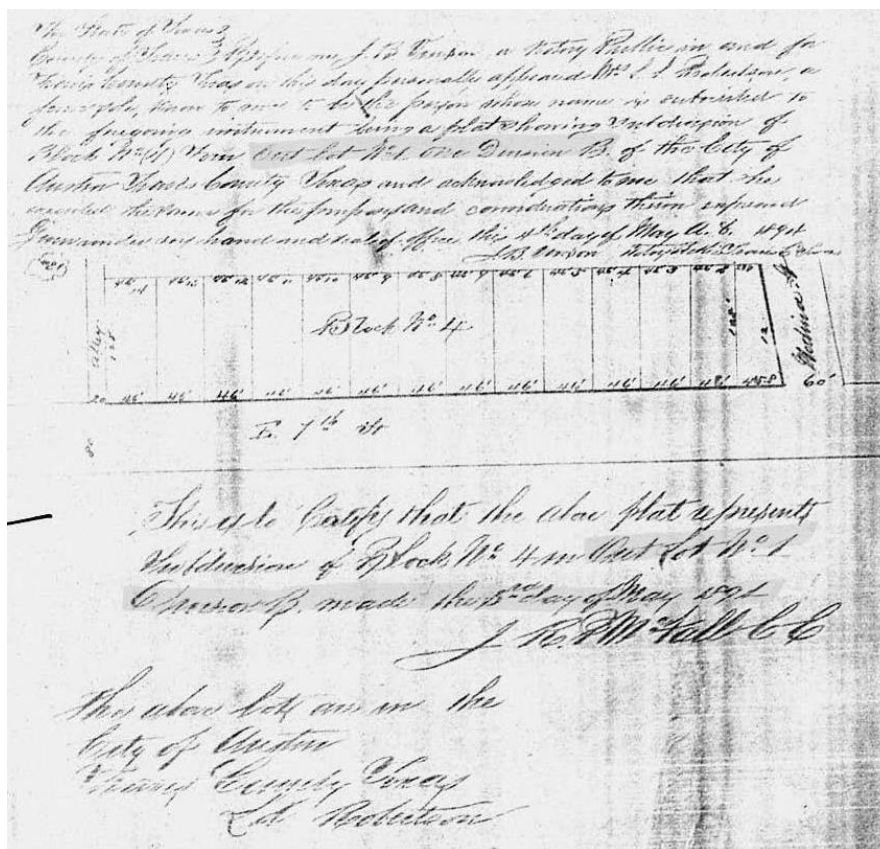 The State of Texas
County of Travis } Before me, J. B. Vinson, a Notary Public in and for
Travis County Texas on this day personally appeared Mrs. L. L. Robertson, a
feme sole, known to me to be the person whose name is subscribed to
the foregoing instrument being a plat showing Subdivision of
Block No (4) from Out lot No 1. one Division B. of the City of
Austin Travis County Texas and acknowledged to me that she
executed the same for the purposes and consideration therein expressed
Given under my hand and seal of office this 4th day of May A.D. 1894
J. B. Vinson Notary Public Travis Co Texas
Block No. 4
Alley
128'
12
Medina St
20 46' 46' 46' 46' 46' 46' 46' 46' 46' 46' 46' 46' 60'
E. 7th St
80
This is to Certify that the above plat represents
Subdivision of Block No. 4 in Out Lot No. 1
Division B. made the day of May 1894
J. R. P. McFall C C
The above lots are in the
City of Austin
Travis County Texas
Robertson